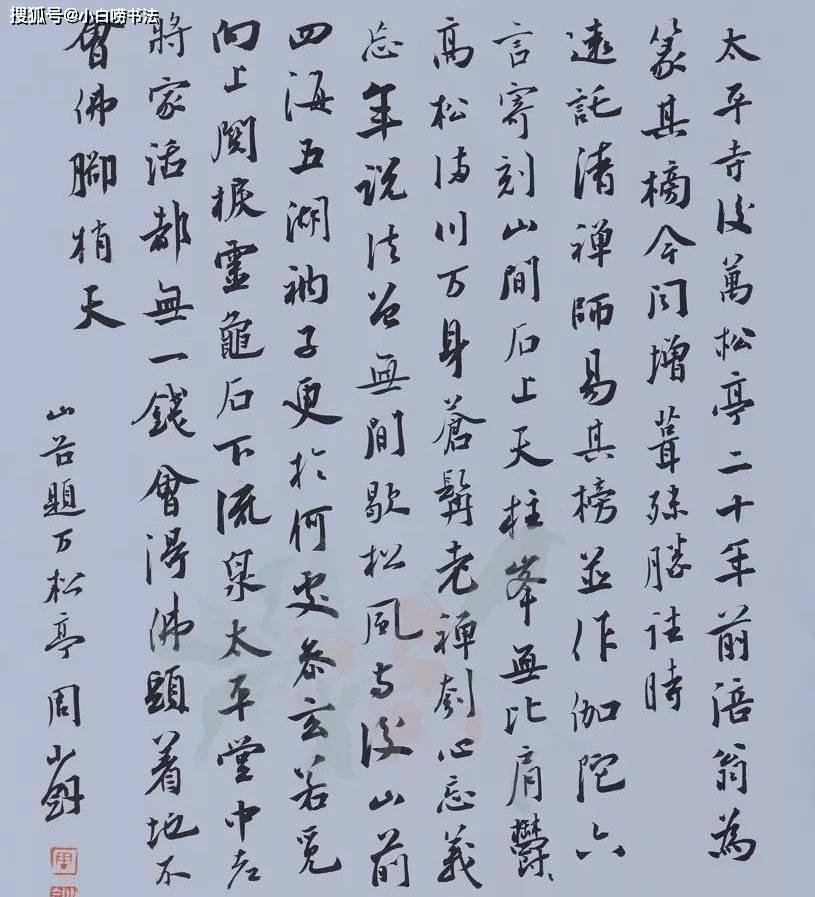 搜狐号@小白唠书法
太平寺後萬松亭二十年前涪翁為
篆其榜今闻增葺殊勝往時
遠託清禅師易其榜并作伽陀六
言寄刻山間石上天柱峯無比肩鬱
高松满川万身蒼髯老禅刳心忘義
忘年说法西無間歇松風与後山前
四海五湖衲子更於何處参玄若覓
向上関捩靈龜石下流泉太平堂中老
將家活都無一錢會得佛頭着地不
會佛脚梢天
山谷題万松亭 周小剑